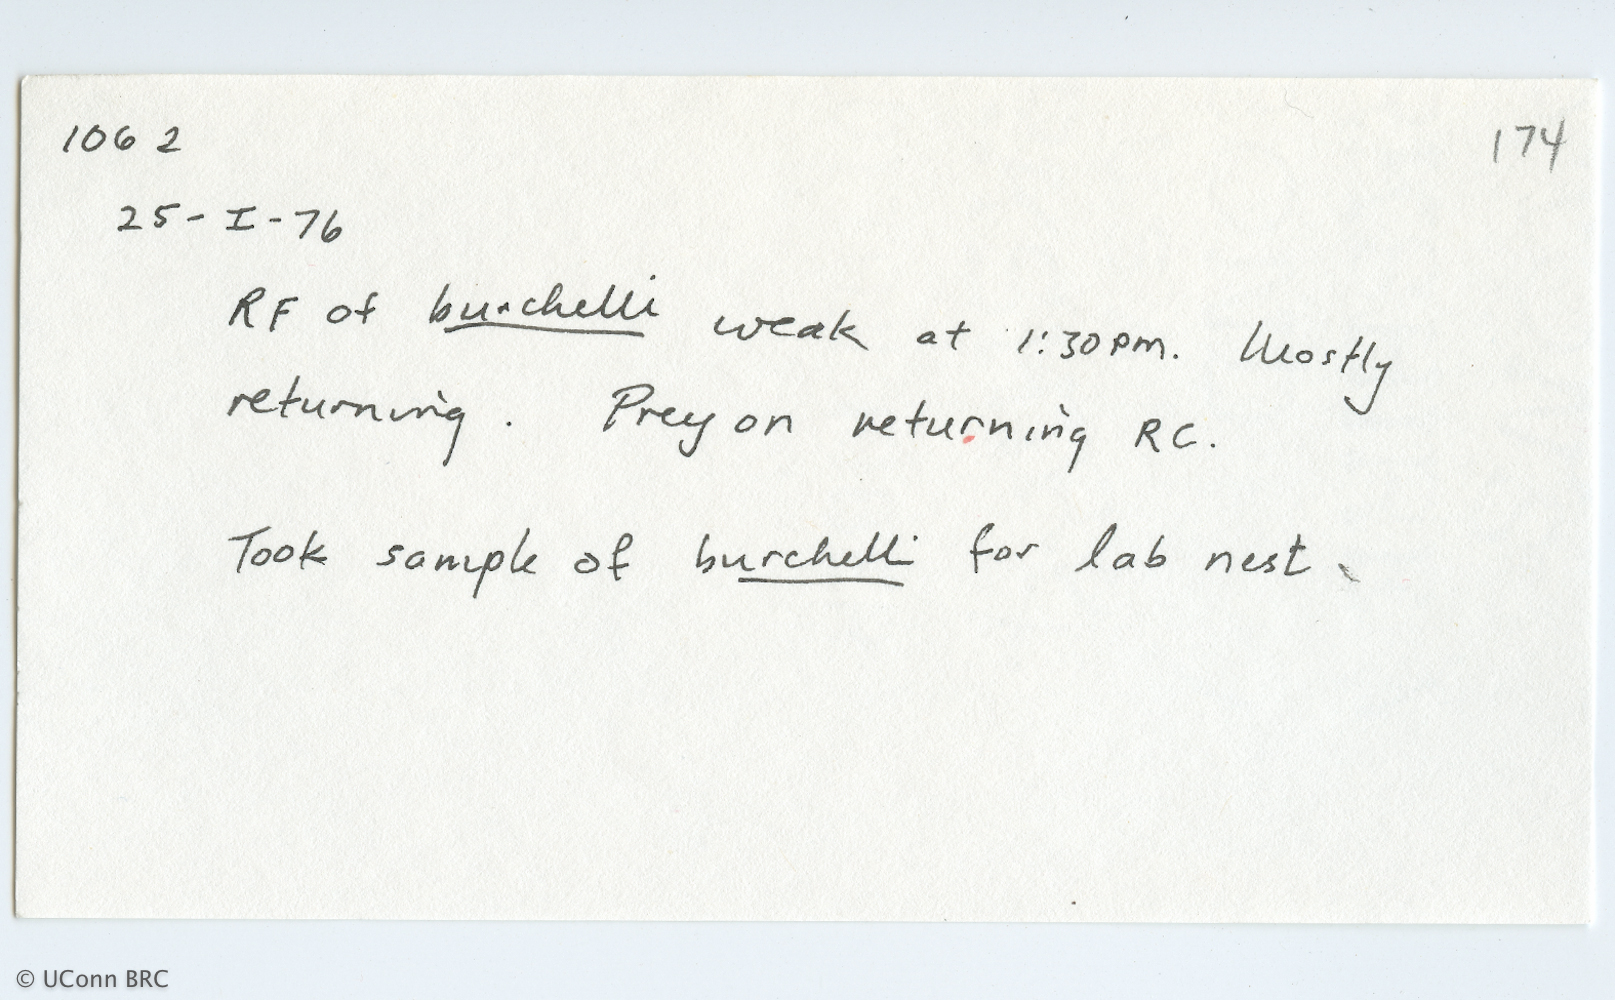 1062
174
25-I-76
RF of burchelli weak at 1:30 pm. Mostly
returning. Prey on returning RC.
Took sample of burchelli for lab nest.
© UConn BRC